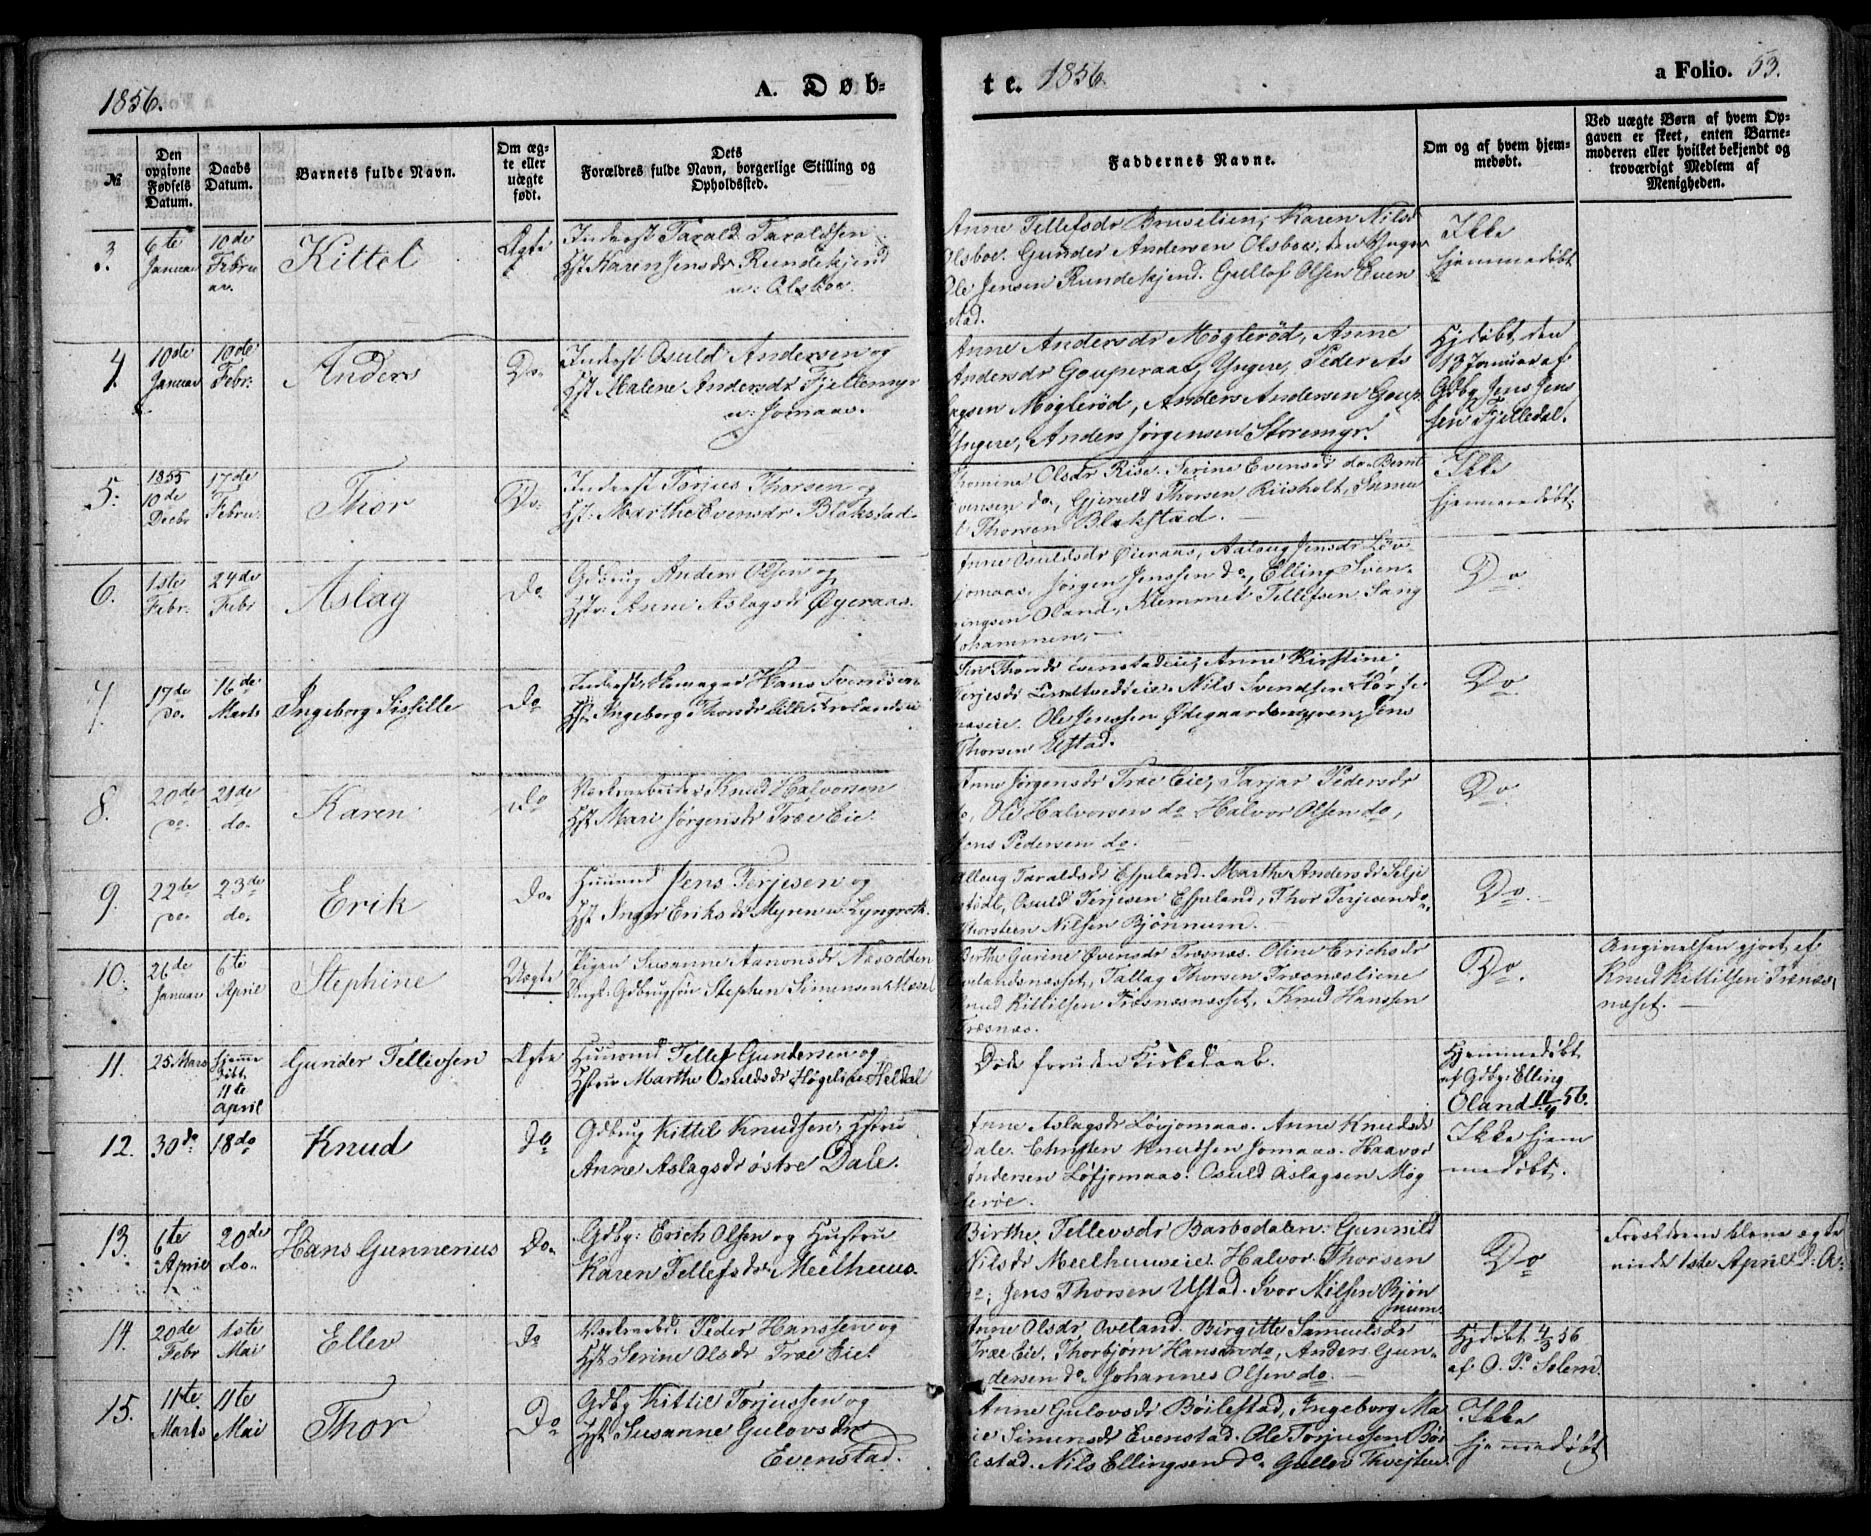 1856.
A. Døb-
te. 1856.
a Folio. 53.
№
Den
opgivne
Fødsels
Datum.
Daabs
Datum.
Barnets fulde Navn.
Om æg-
te eller
uægte
født.
Dets
Forældres fulde Navn, borgerlige Stilling og
Opholdssted.
Faddernes Navne.
Om og af hvem hjem-
medøbt.
Ved uægte Børn af hvem Op-
gaven er skeet, enten Barne-
moderen eller hvilket bekjendt og
troværdigt Medlem af
Menigheden.
3.
6te
Januar
10de
Febru
ar.
Kittel
Ægte
Inderst Tarald Taraldsen
Hst Karen Jensdr Rundekjend
Olsboe.
Anne Tellefsdr Bruselien, Karen Nilsdr
Olsboe. Gunder Andersen Olsboe, den Yngre
Ole Jensen Rundekjend. Gullof Olsen Even
stad.
Ikke
hjemmedøbt
4.
10de
Januar
10de
Febr:
Anders
Do.
Inderst Osuld Andersen og
Hst Malene Andersdr Fjellemyr
Jomaas.
Anne Andersdr Møglerød, Anne
Andersdr Gouperaas, Yngre, Peder As
lagsen Møglerød, Anders Andersen Goup.
Yngre, Anders Jørgensen Storemyr.
Hjdøbt den
13 Januar af
Gdbg Jens Jens
sen Fjelledal.
5.
1855
10de
Decbr
17de
Febru.
Thor
Do.
Inderst Torjus Thorsen og
Hst: Marthe Evensdr Blakstad.
Thomine Olsdr Rise. Serine Evensdr do. Bernt
Evensen do, Gjeruld Thorsen Riisholt,
Thorsen Blakstad.
Ikke
hjemmedøbt.
6.
1ste
Febr:
24de
Febr
Aslag
do
Gdbrug Anders Olsen og
Hst: Anne Aslagsdr Øyeraas.
Anne Osuldsdr Øieraas, Aaloug Jensdr Løv
jomaas, Jørgen Jenssen do, Elling Sven-
ningsen Oland, Klemmet Tellefsen Sang
Do
7
17de
do.
16de
Marts
Ingeborg Sissille
do
Inderst, Skomager Hans Svendsen
Hst Ingeborg Thorsdr lille Frolandseie
Siri Thorsdr Evenstadeie, Anne Kirstine
Terjesdr Lindtvedteie. Nils Svendsen
Ole Jenssen Ødegaardsmyren, Jens
Thorsen Ufstad.
Do
8.
20de
do.
21de
do.
Karen
do
Værksarbeider Knud Halvorsen
Hst Mari Jørgensdr Træe Eie.
Anne Jørgensdr Træe Eie, Tarjer Pedersdr
do, Ole Halvorsen do Halvor Olsen do,
Jens Pedersen do.
Do
9.
22de
do.
23de
do.
Erik
Do.
Huusmd Jens Terjesen og
Hst Inger Eriksdr Myren u. Lyngroth.
Alloug Taraldsdr Espeland. Marthe Andersdr Selje
stødl, Osuld Terjesen Espeland, Thor Terjesen do.
Thorsteen Nilsen Bjønnum.
Do.
10.
26de
Januar
6te
April
Stephine
Uægte
Pigen Susanne Aanonsdr Næsodden
Ungk: Gdbrugsøn Stephen Simensen Messel
Berthe Gurine Øvensdr Træsnæs. Oline Erichsdr
Ovelandsnæsset, Tallag Thorsen Træsnæsliene
Knud Kittilsen Træsnæsnæsset. Knud Hanssen
Træsnæs.
Do.
Angivelsen gjort af
Knud Kittilsen Træsnæs,
næset.
11.
25 Mars
Hjemme
Døbt
11te
April
Gunder Tellevsen
Ægte
Huusmd Tellef Gundersen og
Hstru Marthe Osuldsdr Høgelien Heldal
Døde foruden Kirkedaab.
Hjemmedøbt
af Gdbg: Elling
Oland 11/4 56.
12.
30 do
18 do
Knud
Do
Gdbrug Kittil Knudsen, Hstru
Anne Aslagsdr østre Dale.
Anne Aslagsdr Løvjomaas. Anne Knudsdr
Dale. Christen Knudsen Jomaas. Haavor
Andersen Løfjomaas. Osuld Aslagsen Møg
lerøe.
Ikke hjem
medøbt.
13.
6te
April
20de
do.
Hans Gunnerius
Do.
Gdbg: Erich Olsen og Hustru
Karen Tellefsdr Meelhuus.
Birthe Tellevsdr Barbodalen. Gunnild
Nilsdr Meelhuuseie. Halvor Thorsen
do; Jens Thorsen Ufstad. Ivor Nilsen Bjøn
num.
Do
Forældrene bleve ægte
viede 1ste April d: A.
14.
20de
Febr
1ste
Mai
Ellev
Do
Værksarbd. Peder Hanssen og
Hst Serine Olsdr Træe Eie.
Anne Olsdr Oveland. Birgitte Samuelsdr
Træe Eie. Thorbjørn Hansen do, Anders Gun-
dersen do. Johannes Olsen do.
Hjdøbt 4/3 56
af O. P. Solem.
15.
11te
Marts
11te
Mai
Thor
Do
Gdbg Kittil Torjussen og
Hst Susanne Gulovsdr
Evenstad.
Anne Gulovsdr Bøilestad, Ingeborg Ma
rie Simensdr Evenstad. Ole Torjussen Bøi
lestad. Nils Ellingsen do. Gullov Thvejten.
Ikke
hjemmedøbt